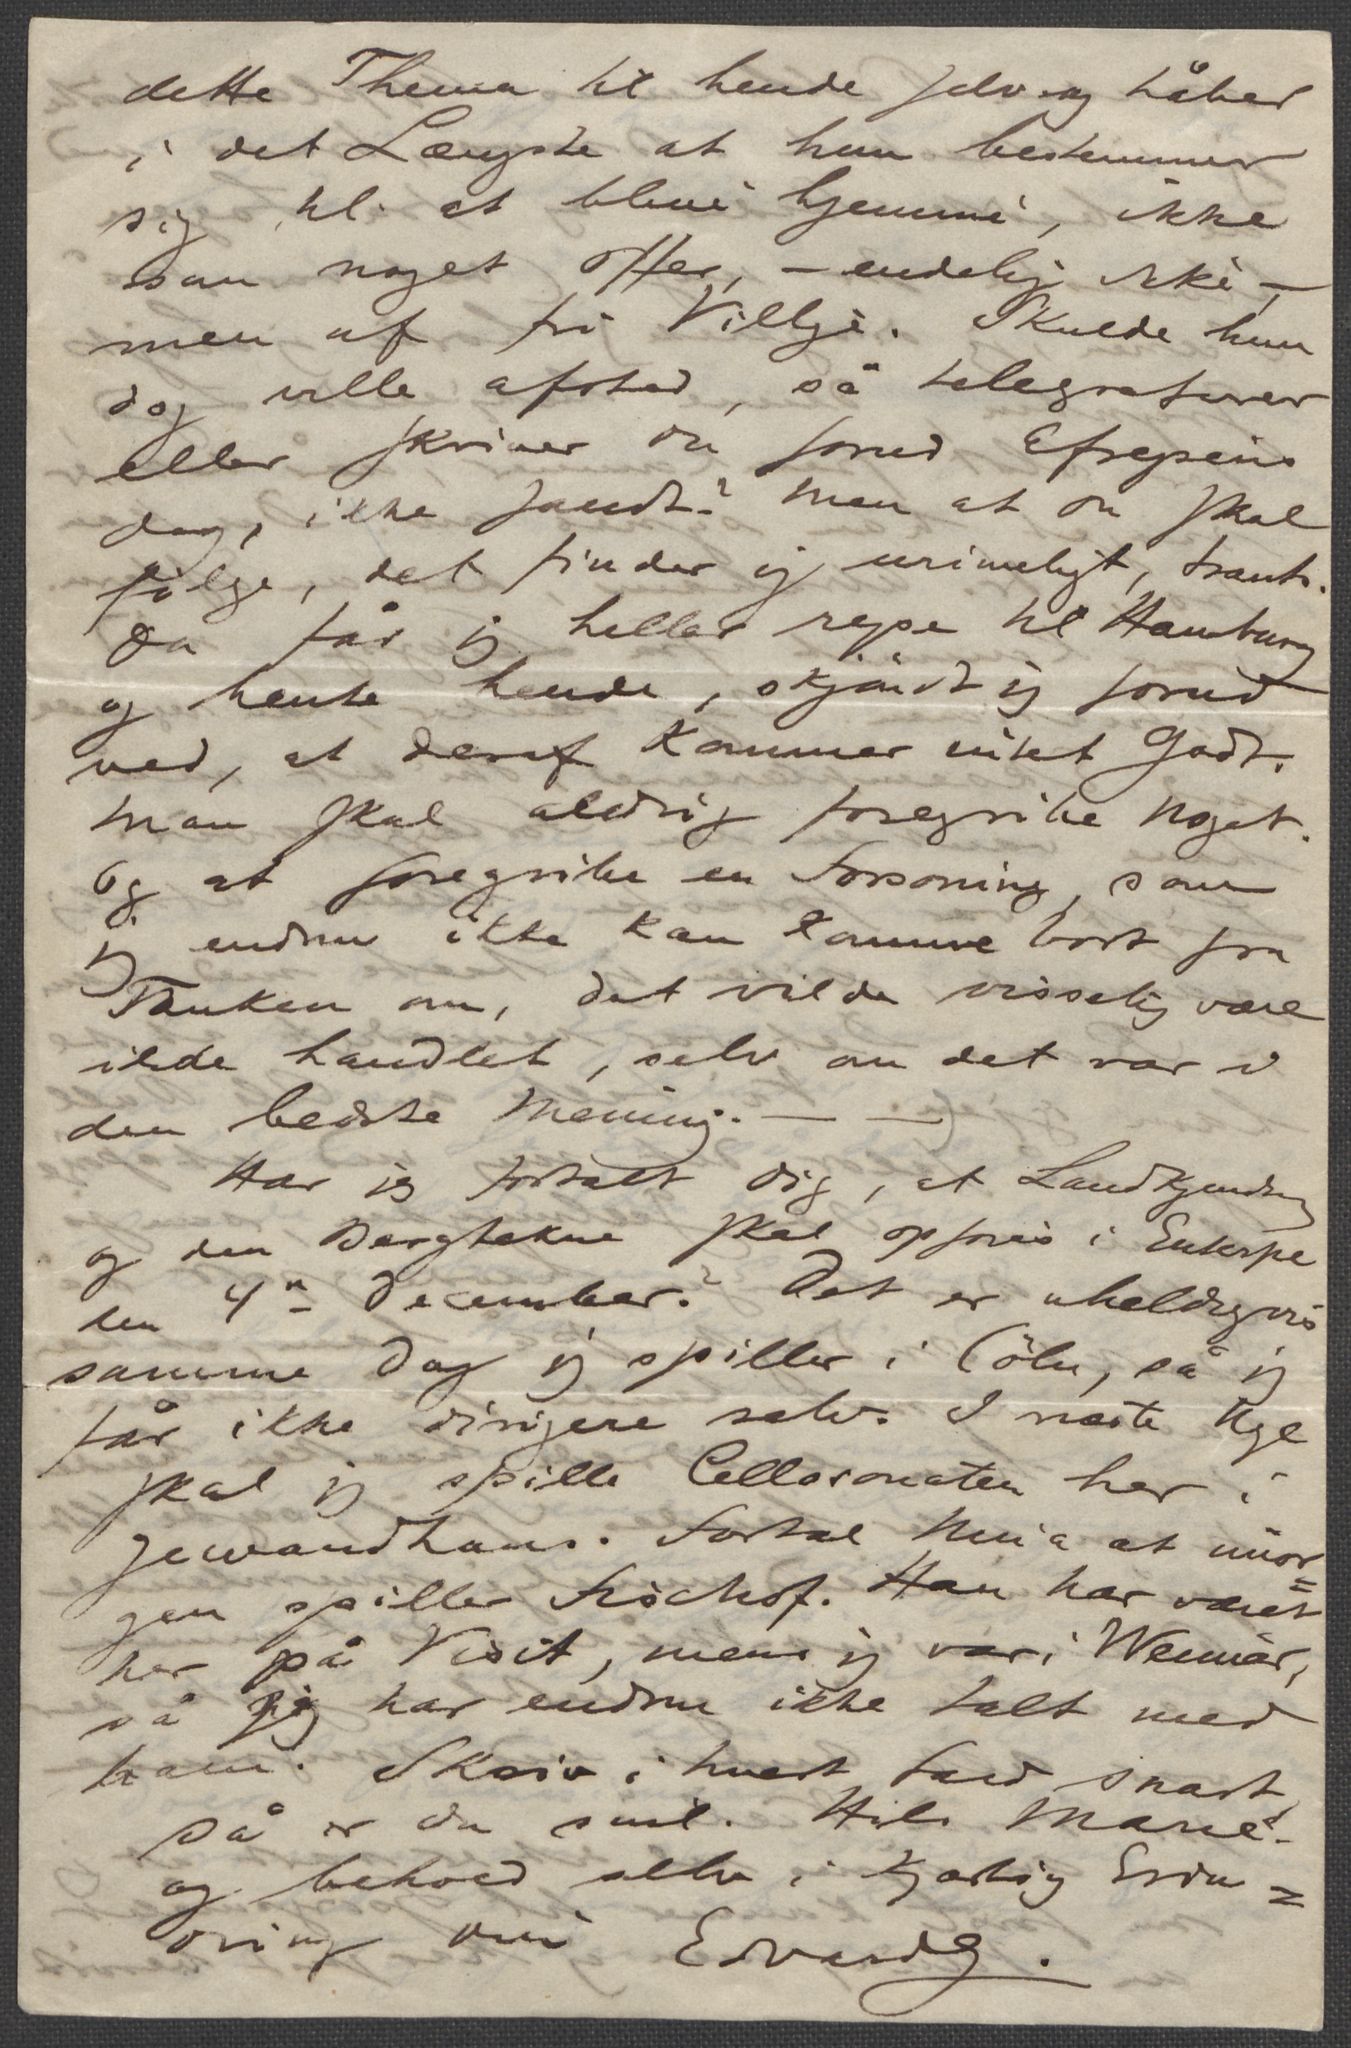 dette Thema til hende selv og håber
i det Længste at hun bestemmer
sig til at blive hjemme, ikke
som noget Offer, – endelig ikke –,
men af fri Villje. Skulde hun
dog ville afsted, så telegraferer
eller skriver du forud Afrejsens
dag, ikke sandt? Men at du skal
følge, det finder jeg urimeligt, Frants.
Da får jeg heller rejse til Hamburg
og hente hende, skjøndt jeg forud
ved, at deraf kommer intet Godt.
Man skal aldrig foregribe Noget.
Og at foregribe en Forsoning, som
jeg endnu ikke kan komme bort fra
Tanken om, det vilde visselig være
ilde handlet, selv om det var i
den bedste Mening. – –
Har jeg fortalt dig, at Landkjending
og den Bergtekne skal opføres i Euterpe
den 4de December? Det er uheldigvis
samme Dag jeg spiller i Cöln, så jeg
får ikke dirigere selv. I næste Uge
skal jeg spille Cellosonaten her i
Gewandhaus. Fortal Nina at imor=
gen spiller Fischhof. Han har været
her på Visit, mens jeg var i Weimar,
så jeg har endnu ikke talt med
ham. Skriv i hvert Fald snart,
så er du snil. Hils Marie
og behold selv i kjærlig Erin=
dring din Edvard G.